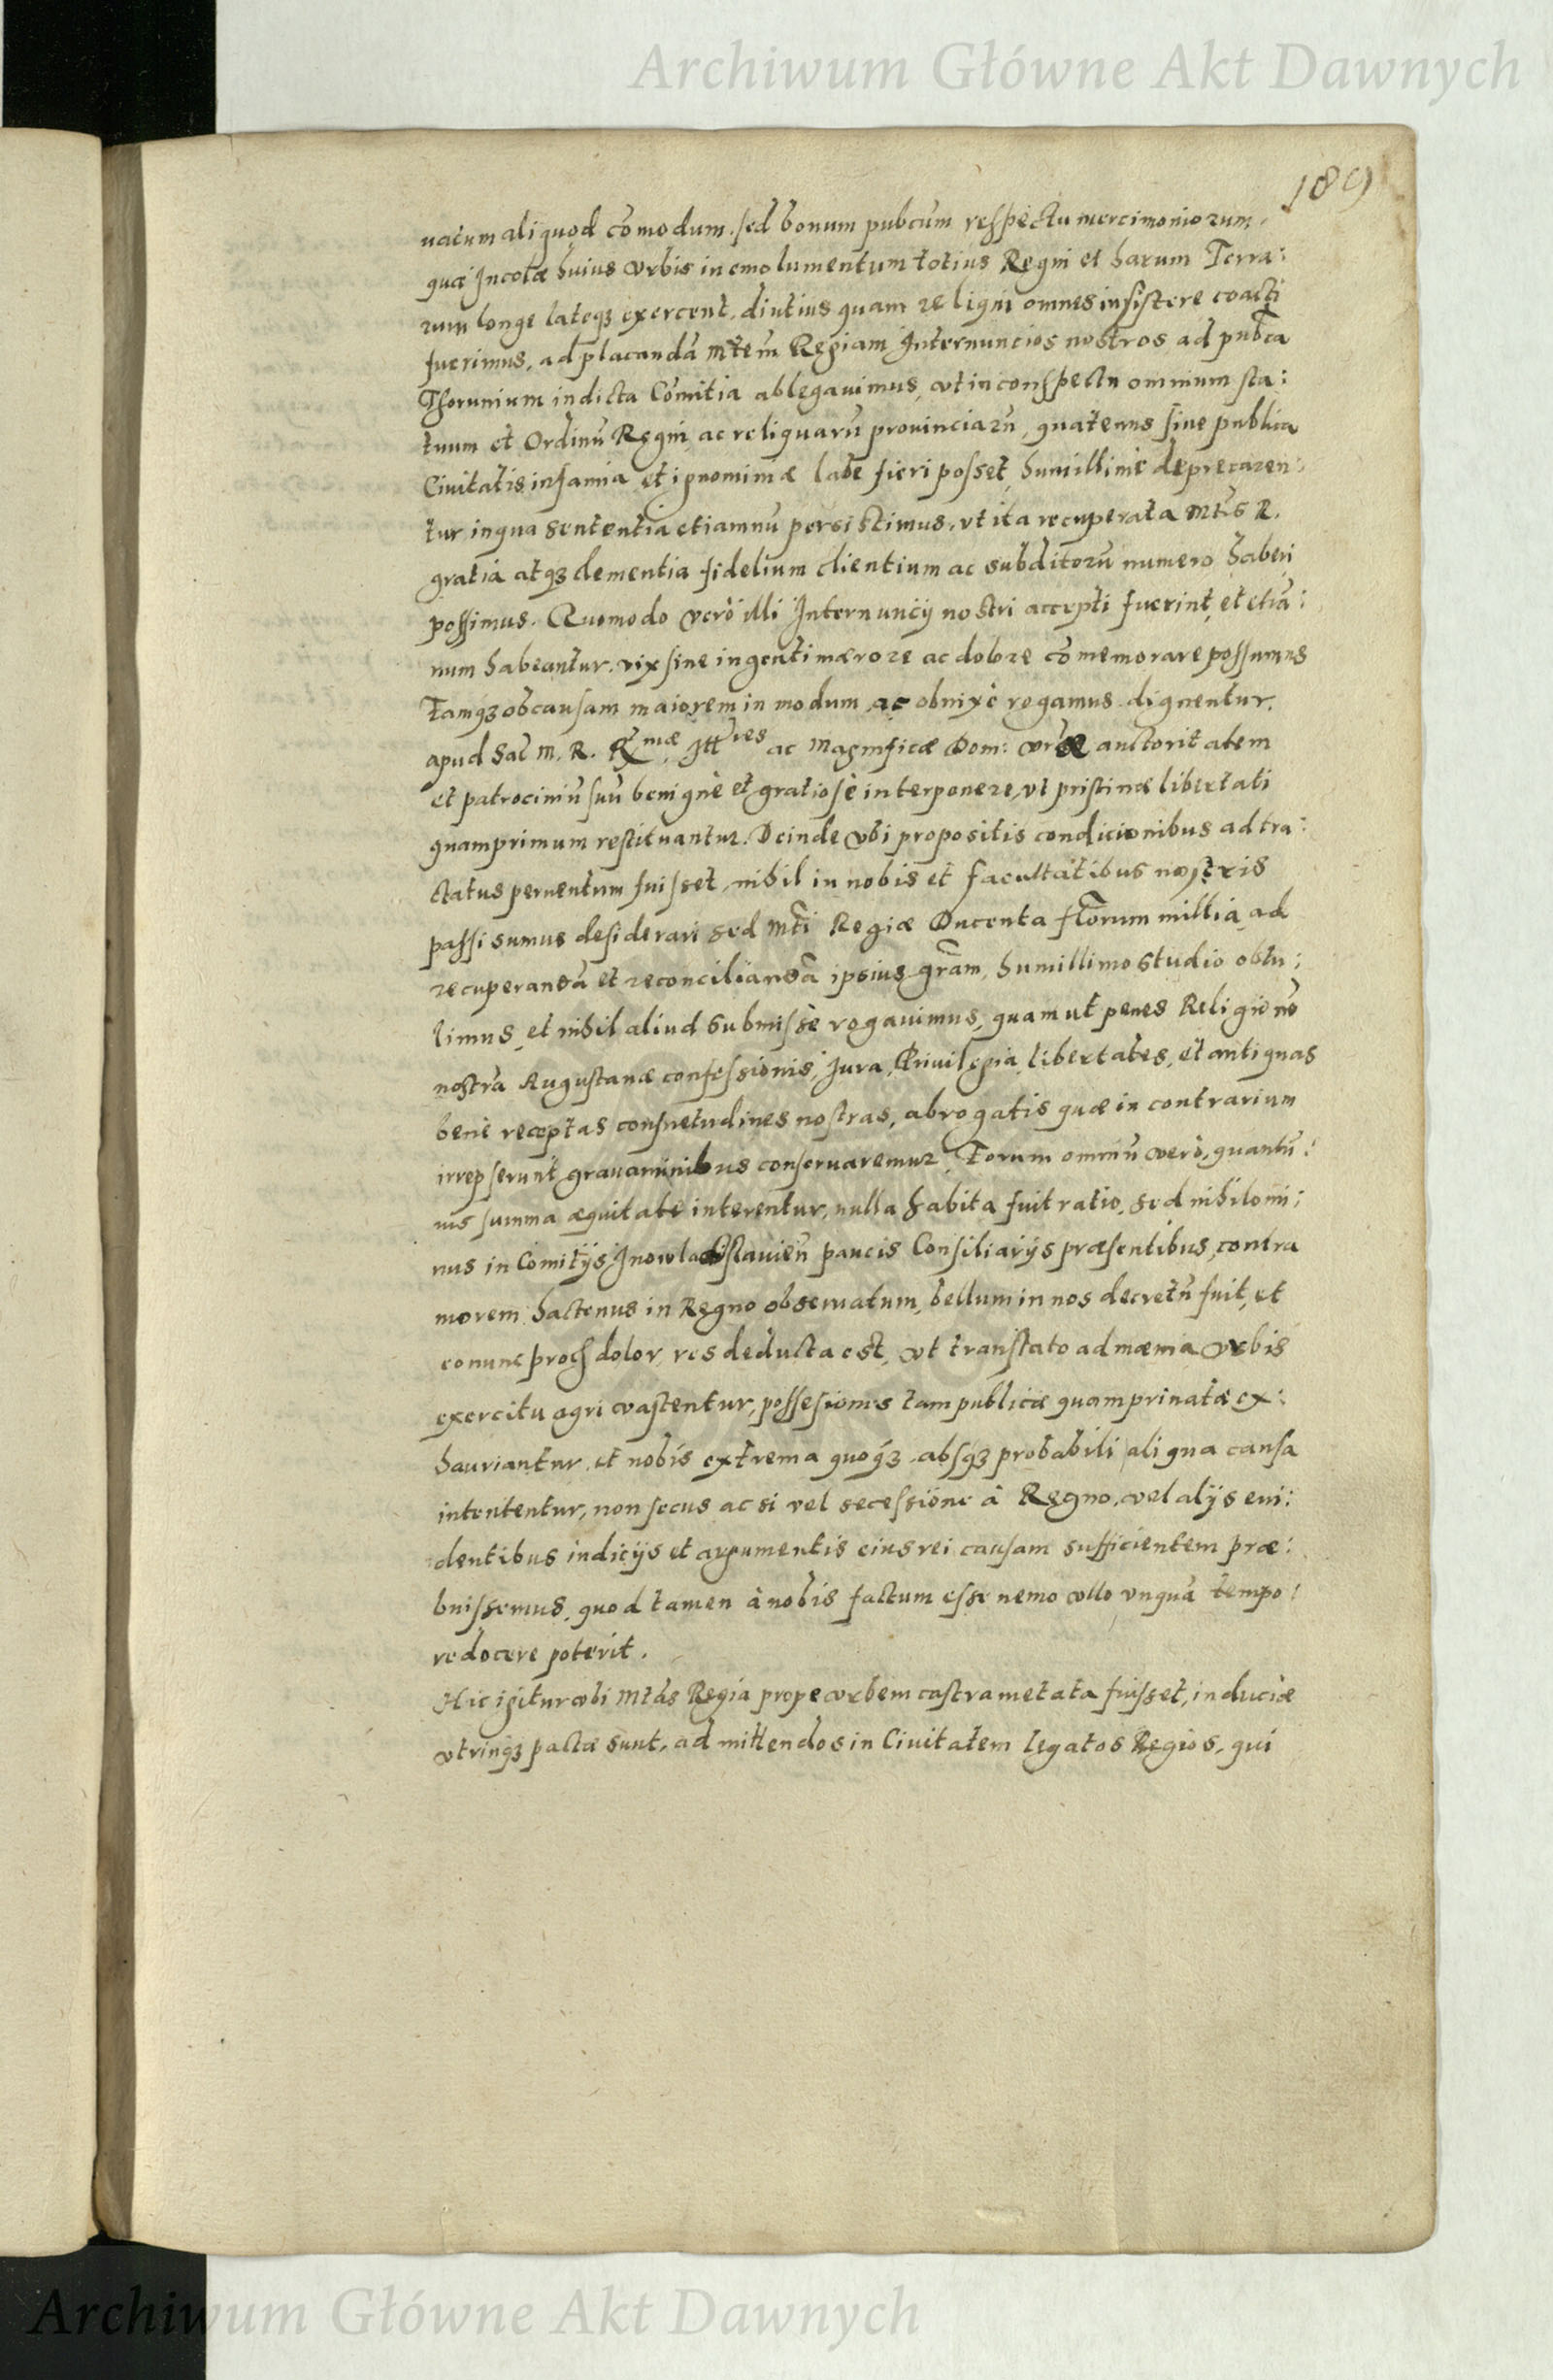 Archiwum Główne Akt Dawnych
189
uatum aliquod cōmodum. sed bonum pubcum respectu mercimoniorum,
quæ Incolæ huius vrbis in emolumentum totius Regni et harum Terra:
rum longe lateqꝫ exercent, diutius quam reliqui omnes insistere coacti
fuerimus, ad placandā Mtem Regiam Internuncios nostros ad pubca
Thorunium indicta Comitia ablegauimus, vt in conspectu omnium sta:
tuum et Ordinū Regni ac reliquarū prouinciarū, quatenus sine publica
Ciuitatis infamia et ignominiæ labe fieri posset, humillimè deprecaren:
tur, in qua sententia etiamnū persistimus, vt ita recuperata Mtis R.
gratia atqꝫ clementia fidelium clientium ac subditorū numero haberi
possimus. Quomodo verò illi Internuncij nostri accepti fuerint, et etiā:
num habeantur, vix sine ingenti mærore ac dolore cōmemorare possumus
Tamqꝫ ob causam maiorem in modum ac obnixè rogamus dignentur,
apud Sac M. R. Rmæ Illres ac Magnificæ Dom: vræ auctoritatem
et patrociniū suū benignè et gratiosè interponere, vt pristinæ libertati
quamprimum restituantur. Deinde vbi propositis condicionibus ad tra:
ctatus peruentum fuisset, nihil in nobis et facultatibus nostris
passi sumus desiderari sed Mti Regiæ Ducenta florum millia ad
recuperandā et reconciliandā ipsius gram, humillimo studio obtu:
limus, et nihil aliud submissè rogauimus, quam ut penes Religionē
nostrā Augustanæ confessionis, Jura, Priuilegia, libertates, et antiquas
benè receptas consuetudines nostras, abrogatis quæ in contrarium
irrepserunt grauaminibus conseruaremur. Eorum omniū verò, quantū:
uis summa æquitate niterentur, nulla habita fuit ratio, sed nihilomi:
nus in Comitijs Inowladislauien paucis Consiliarijs præsentibus, contra
morem hactenus in Regno obseruatum, bellum in nos decretū fuit, et
eo nunc proch dolor, res deducta est, vt translato ad mænia vrbis
exercitu agri vastentur, possesiones tam publicæ quam priuatæ ex:
hauriantur, et nobis extrema quoqꝫ, absqꝫ probabili aliqua causa
intententur, non secus ac si vel secessione à Regno, vel alijs eui:
dentibus indicijs et argumentis eius rei causam sufficientem præ:
buissemus, quod tamen à nobis factum esse nemo vllo vnquā tempo:
re docere poterit.
Hic igitur vbi Mtas Regia prope vrbem castrametata fuisset, induciæ
vtrinqꝫ pactæ sunt, ad mittendos in Ciuitatem legatos Regios, qui
Archiwum Główne Akt Dawnych